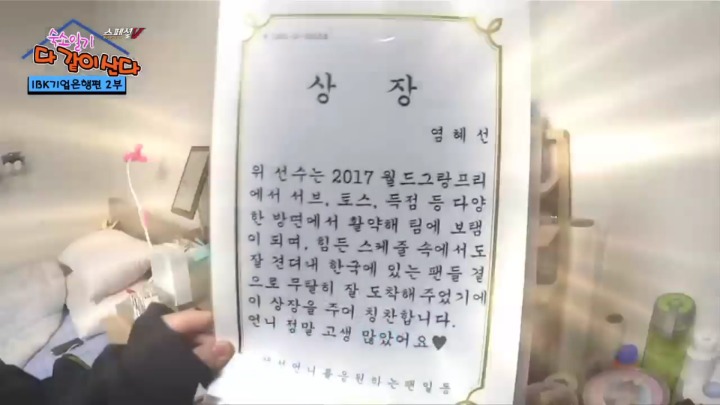 스페셜V
숙소일기
다 같이 산다
IBK기업은행편 2부
상 장
염혜선
위 선수는 2017 월드그랑프리
에서 서브, 토스, 득점 등 다양
한 방면에서 활약해 팀에 보탬
이 되며, 힘든 스케줄 속에서도
잘 견뎌내 한국에 있는 팬들 곁
으로 무탈히 잘 도착해주었기에
이 상장을 주어 칭찬합니다.
언니 정말 고생 많았어요♥
언니를응원하는팬일동